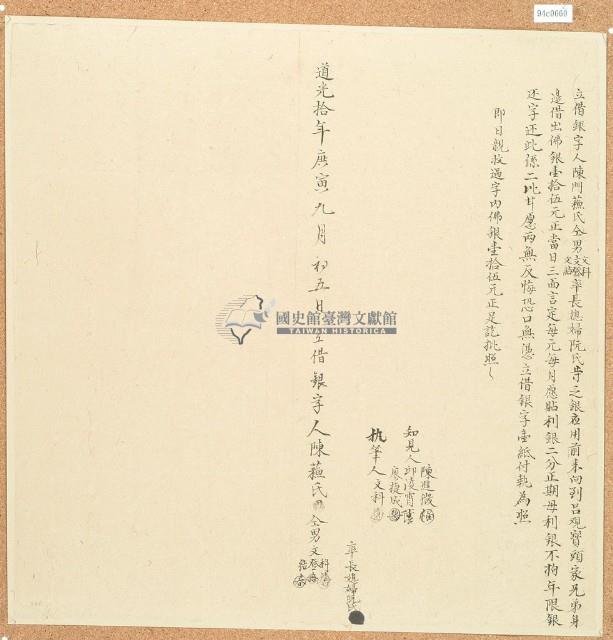 94c0660
立借銀字人陳門蘇氏仝男文科文發文結率長媳婦阮氏等乏銀應用前來向到呂觀寶頭家兄弟身
邊借出佛銀壹拾伍元正當日三面言定每元每月愿貼利銀二分正期母利銀不拘年限銀
还字还此係二比甘愿两無反悔恐口無憑立借銀字壹紙付執為照
即日親收過字內佛銀壹拾伍元正足訖批照
陳進
知見人邱凌霄
廖捷成
执筆人文科
道光拾年庚寅九月初五日立借銀字人陳蘇氏仝男文科發結
率長媳婦阮氏
國史館臺灣文獻館
TAIWAN HISTORICA